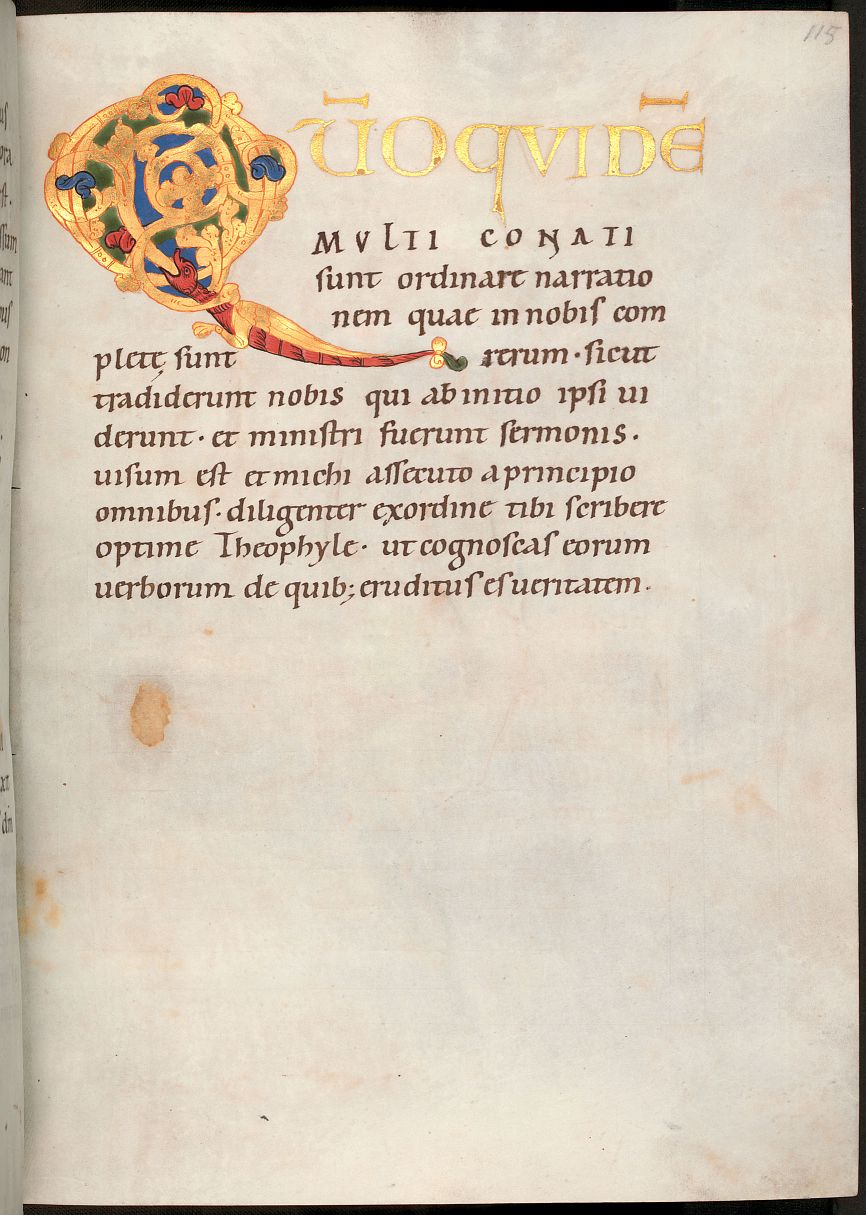 115
QŪOQVIDĒ
MVLTI CONATI
sunt ordinare narratio
nem quae in nobis com
pletę sunt rerum · sicut
tradiderunt nobis qui ab initio ipsi ui
derunt · et ministri fuerunt sermonis .
uisum est et michi assecuto a principio
omnibus · diligenter ex ordine tibi scribere
optime Theophyle · ut cognoscas eorum
uerborum de quib; eruditus es ueritatem .